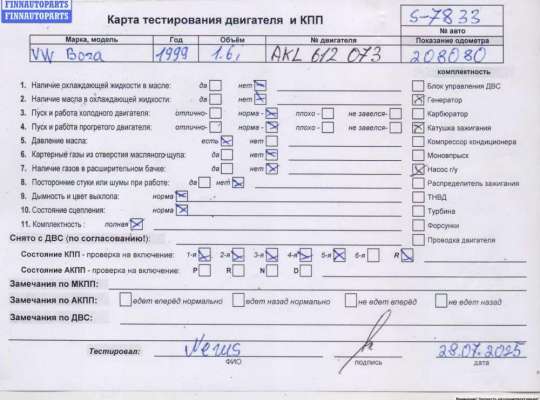 FINNAUTOPARTS
FINNAUTOPARTS
Карта тестирования двигателя и КПП
S-7833
№ авто
Марка, модель Год Объём № двигателя Показание одометра
VW Bora 1999 1.6i AKL 612 073 208080
комплектность
1. Наличие охлаждающей жидкости в масле: да нет
2. Наличие масла в охлаждающей жидкости: да нет
3. Пуск и работа холодного двигателя: отлично- норма - плохо - не завелся-
4. Пуск и работа прогретого двигателя: отлично- норма - плохо - не завелся-
5. Давление масла: есть нет
6. Картерный газы из отверстия масляного-щупа: да нет
7. Наличие газов в расширительном бачке: да нет
8. Посторонние стуки или шумы при работе: да нет
9. Дымность и цвет выхлопа: норма
10. Состояние сцепления: норма
11. Комплектность : полная
Блок управления ДВС
Генератор
Карбюратор
Катушка зажигания
Компрессор кондиционера
Моновпрыск
Насос г/у
Распределитель зажигания
ТНВД
Турбина
Форсунки
Проводка двигателя
Снято с ДВС (по согласованию!):
Состояние КПП - проверка на включение: 1-я 2-я 3-я 4-я 5-я 6-я R
Состояние АКПП - проверка на включение: P R N D
Замечания по МКПП:
Замечания по АКПП: едет вперёд нормально едет назад нормально не едет вперёд не едет назад
Замечания по ДВС:
Тестировал: 28.07.2025
ФИО подпись дата